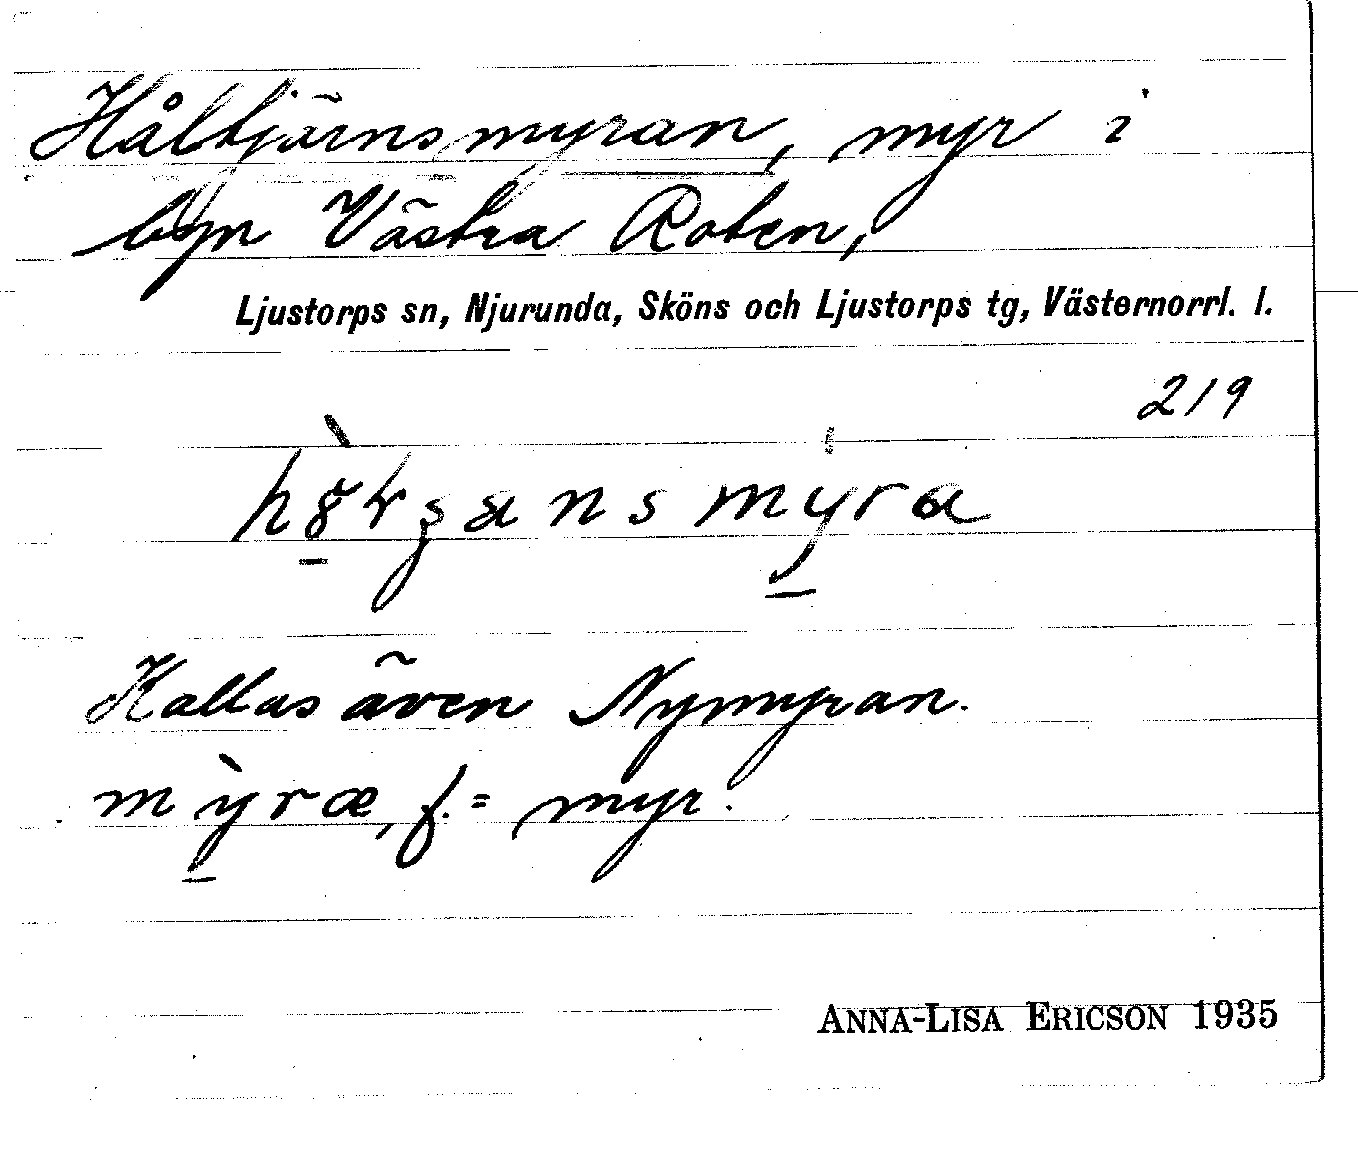 Håltjärnsmyran, myr i
byn Västra Roten,
Ljustorps sn, Njurunda, Sköns och Ljustorps tg, Västernorrl. l.
219
Kallas även Nymyran.
mỳræ, f. = myr.
ANNA-LISA ERICSON 1935